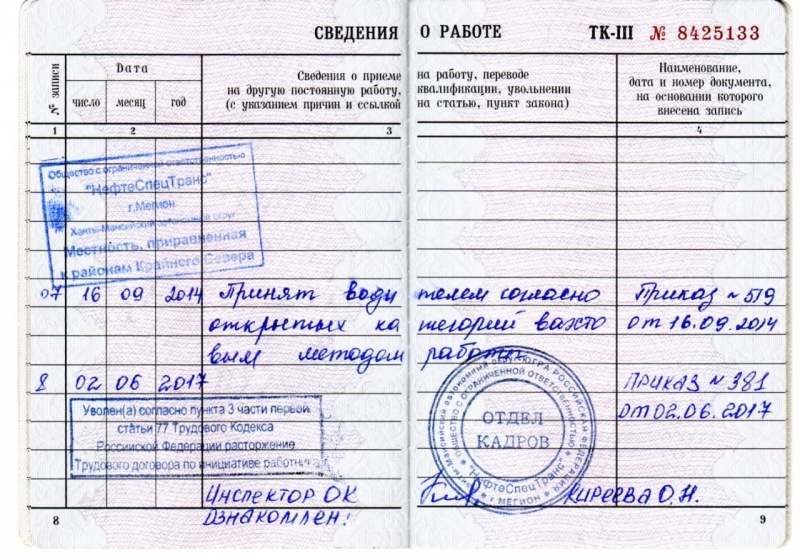 СВЕДЕНИЯ О РАБОТЕ ТК-III № 8425133
№ записи
Дата
число месяц год
Сведения о приеме на работу, переводе
на другую постоянную работу, квалификации, увольнении
(с указанием причин и ссылкой на статью, пункт закона)
Наименование,
дата и номер документа,
на основании которого
внесена запись
1 2 3 4
Общество с ограниченной ответственностью
"НефтеСпецТранс"
г.Мегион
Ханты-Мансийский автономный округ
Местность, приравненная
к районам Крайнего Севера
07 16 09 2014 Принят водителем согласно Приказ №519
открытых категорий вахто от 16.09.2014
вым методом работы.
8 02 06 2017 Приказ №381
от 02.06.2017
Уволен(а) согласно пункта 3 части первой
статьи 77 Трудового Кодекса
Российской Федерации расторжение
Трудового договора по инициативе работника
ОТДЕЛ
КАДРОВ
ОБЩЕСТВО С ОГРАНИЧЕННОЙ ОТВЕТСТВЕННОСТЬЮ
"НефтеСпецТранс"
г МЕГИОН
Инспектор ОК Киреева О.Н.
Ознакомлен:
8 9